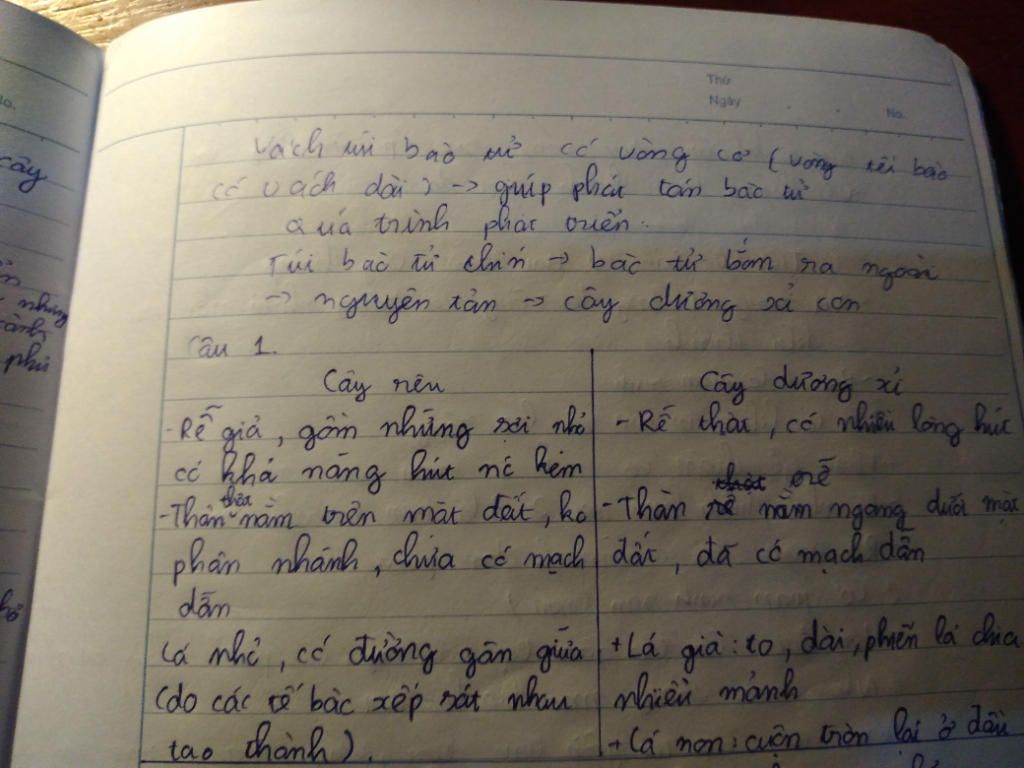 Thứ
Ngày
No.
Vách túi bào tử có vòng cơ (vòng tế bào
có vách dài) -> giúp phát tán bào tử
Quá trình phát triển.
Túi bào tử chín -> bào tử bắn ra ngoài
-> nguyên tản -> cây dương xỉ con
Câu 1.
Cây rêu
- Rễ giả, gồm những sợi nhỏ
có khả năng hút nc kém
- Thân thật nằm trên mặt đất, ko
phân nhánh, chưa có mạch
dẫn
Lá nhỏ, có đường gân giữa
(do các tế bào xếp sát nhau
tạo thành).
Cây dương xỉ
- Rễ thật, có nhiều lông hút
- Thân rễ nằm ngang dưới mặt
đất, đã có mạch dẫn
+ Lá già: to, dài, phiến lá chia
nhiều mảnh
+ Lá non: cuộn tròn lại ở đầu
cây
nhưng
cành
phủ